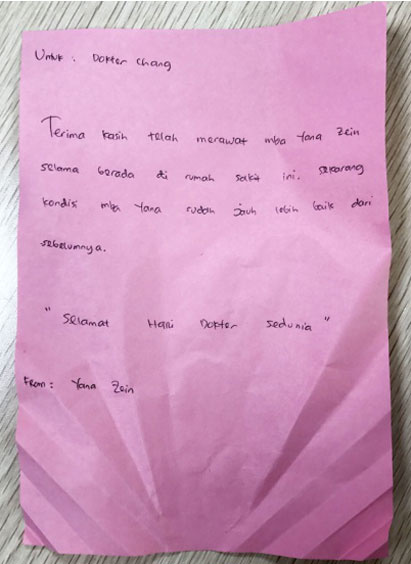 Untuk : Dokter Chang
Terima kasih telah merawat mba Yana Zein
selama berada di rumah sakit ini. sekarang
kondisi mba Yana sudah jauh lebih baik dari
sebelumnya.
" Selamat Hari Dokter Sedunia "
From : Yana Zein